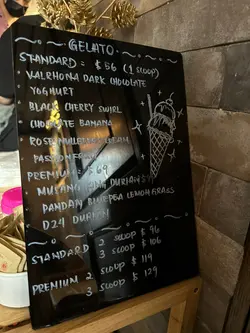 GELATO
STANDARD = $56 (1 SCOOP)
VALRHONA DARK CHOCOLATE
YOGHURT
BLACK CHERRY SWIRL
CHOCOLATE BANANA
ROSE CREAM
PASSIONFRUIT
PREMIUM = $69
MUSANG KING DURIAN
PANDAN BLUEPEA LEMONGRASS
D24 DURIAN
STANDARD 2 SCOOP $96
3 SCOOP $106
PREMIUM 2 SCOOP $119
3 SCOOP $129